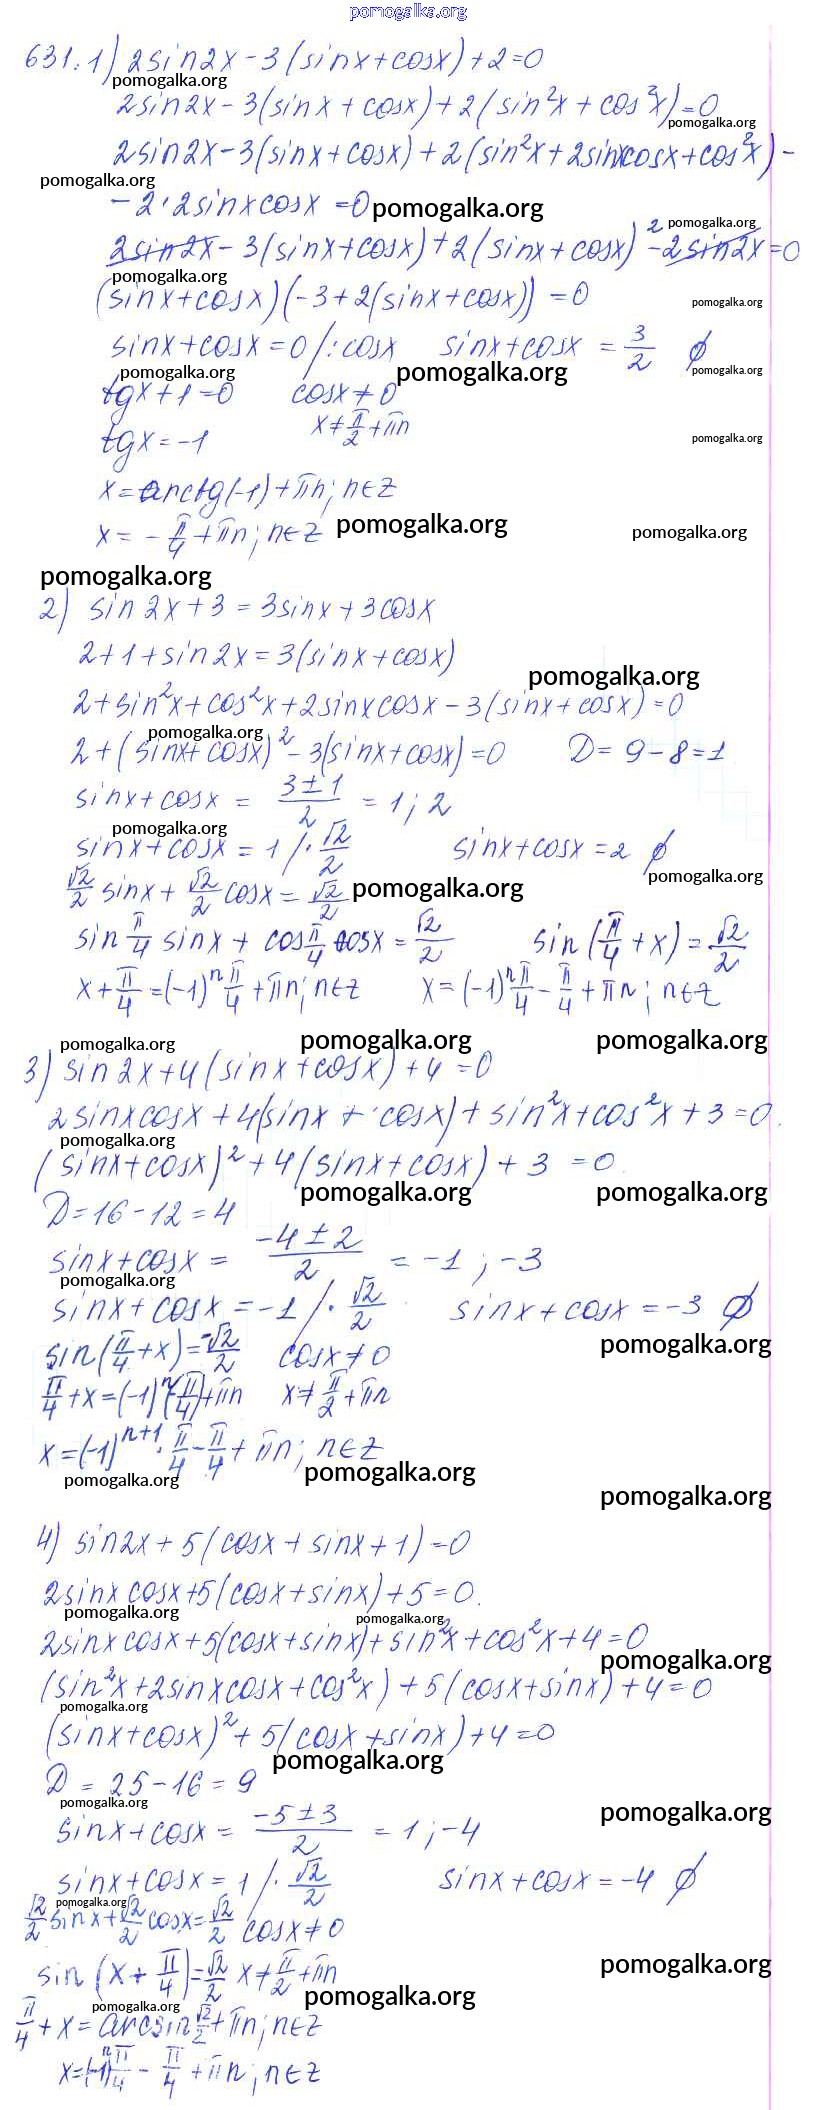 pomogalka.org
631. 1) 2sin2x - 3(sinx + cosx) + 2 = 0
pomogalka.org
2sin2x - 3(sinx + cosx) + 2(sin²x + cos²x) = 0
pomogalka.org
2sin2x - 3(sinx + cosx) + 2(sin²x + 2sinxcosx + cos²x) -
pomogalka.org
- 2 · 2sinxcosx = 0 pomogalka.org
pomogalka.org
2sin2x - 3(sinx + cosx) + 2(sinx + cosx)² - 2sin2x = 0
pomogalka.org
(sinx + cosx)(-3 + 2(sinx + cosx)) = 0 pomogalka.org
sinx + cosx = 0 /: cosx sinx + cosx = 3/2 ∅
pomogalka.org pomogalka.org pomogalka.org
tgx + 1 = 0 cosx ≠ 0
tgx = -1 x ≠ π/2 + πn pomogalka.org
x = arctg(-1) + πn; n∈Z
x = - π/4 + πn; n∈Z pomogalka.org pomogalka.org
pomogalka.org
2) sin2x + 3 = 3sinx + 3cosx
2 + 1 + sin2x = 3(sinx + cosx)
pomogalka.org
2 + sin²x + cos²x + 2sinxcosx - 3(sinx + cosx) = 0
pomogalka.org
2 + (sinx + cosx)² - 3(sinx + cosx) = 0 D = 9 - 8 = 1
sinx + cosx = (3 ± 1)/2 = 1; 2
pomogalka.org
sinx + cosx = 1 / · √2/2 sinx + cosx = 2 ∅
pomogalka.org
√2/2 sinx + √2/2 cosx = √2/2 pomogalka.org
sin π/4 sinx + cos π/4 cosx = √2/2 sin(π/4 + x) = √2/2
x + π/4 = (-1)ⁿ π/4 + πn; n∈Z x = (-1)ⁿ π/4 - π/4 + πn; n∈Z
pomogalka.org pomogalka.org pomogalka.org
3) sin2x + 4(sinx + cosx) + 4 = 0
2sinxcosx + 4(sinx + cosx) + sin²x + cos²x + 3 = 0.
pomogalka.org
(sinx + cosx)² + 4(sinx + cosx) + 3 = 0.
pomogalka.org pomogalka.org
D = 16 - 12 = 4
sinx + cosx = (-4 ± 2)/2 = -1; -3
pomogalka.org
sinx + cosx = -1 / · √2/2 sinx + cosx = -3 ∅
pomogalka.org
sin(π/4 + x) = -√2/2 cosx ≠ 0
π/4 + x = (-1)ⁿ(-π/4) + πn x ≠ π/2 + πn
x = (-1)ⁿ⁺¹ · π/4 - π/4 + πn; n∈Z
pomogalka.org pomogalka.org
pomogalka.org
4) sin2x + 5(cosx + sinx + 1) = 0
2sinxcosx + 5(cosx + sinx) + 5 = 0.
pomogalka.org pomogalka.org
2sinxcosx + 5(cosx + sinx) + sin²x + cos²x + 4 = 0
pomogalka.org
(sin²x + 2sinxcosx + cos²x) + 5(cosx + sinx) + 4 = 0
pomogalka.org
(sinx + cosx)² + 5(cosx + sinx) + 4 = 0
pomogalka.org
D = 25 - 16 = 9
pomogalka.org pomogalka.org
sinx + cosx = (-5 ± 3)/2 = 1; -4
sinx + cosx = 1 / · √2/2 sinx + cosx = -4 ∅
pomogalka.org
√2/2 sinx + √2/2 cosx = √2/2 cosx ≠ 0
pomogalka.org
sin(x + π/4) = √2/2 x ≠ π/2 + πn
pomogalka.org pomogalka.org
π/4 + x = arcsin √2/2 + πn; n∈Z
x = (-1)ⁿ π/4 - π/4 + πn; n∈Z